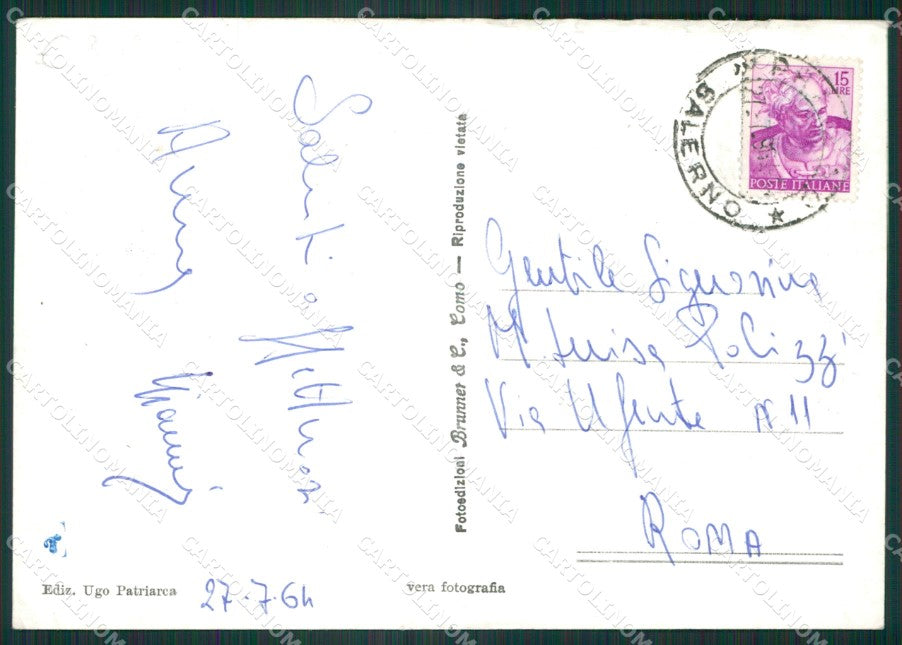 Saluti a
Anna
Gianni
Fotoedizioni Brunner & C., Como — Riproduzione vietata
15
LIRE
POSTE ITALIANE
SALERNO
Gentile Signorina
Mª Luisa Polizzi
Via Ufente n 11
ROMA
Ediz. Ugo Patriarca
27.7.64
vera fotografia
CARTOLINOMANIA